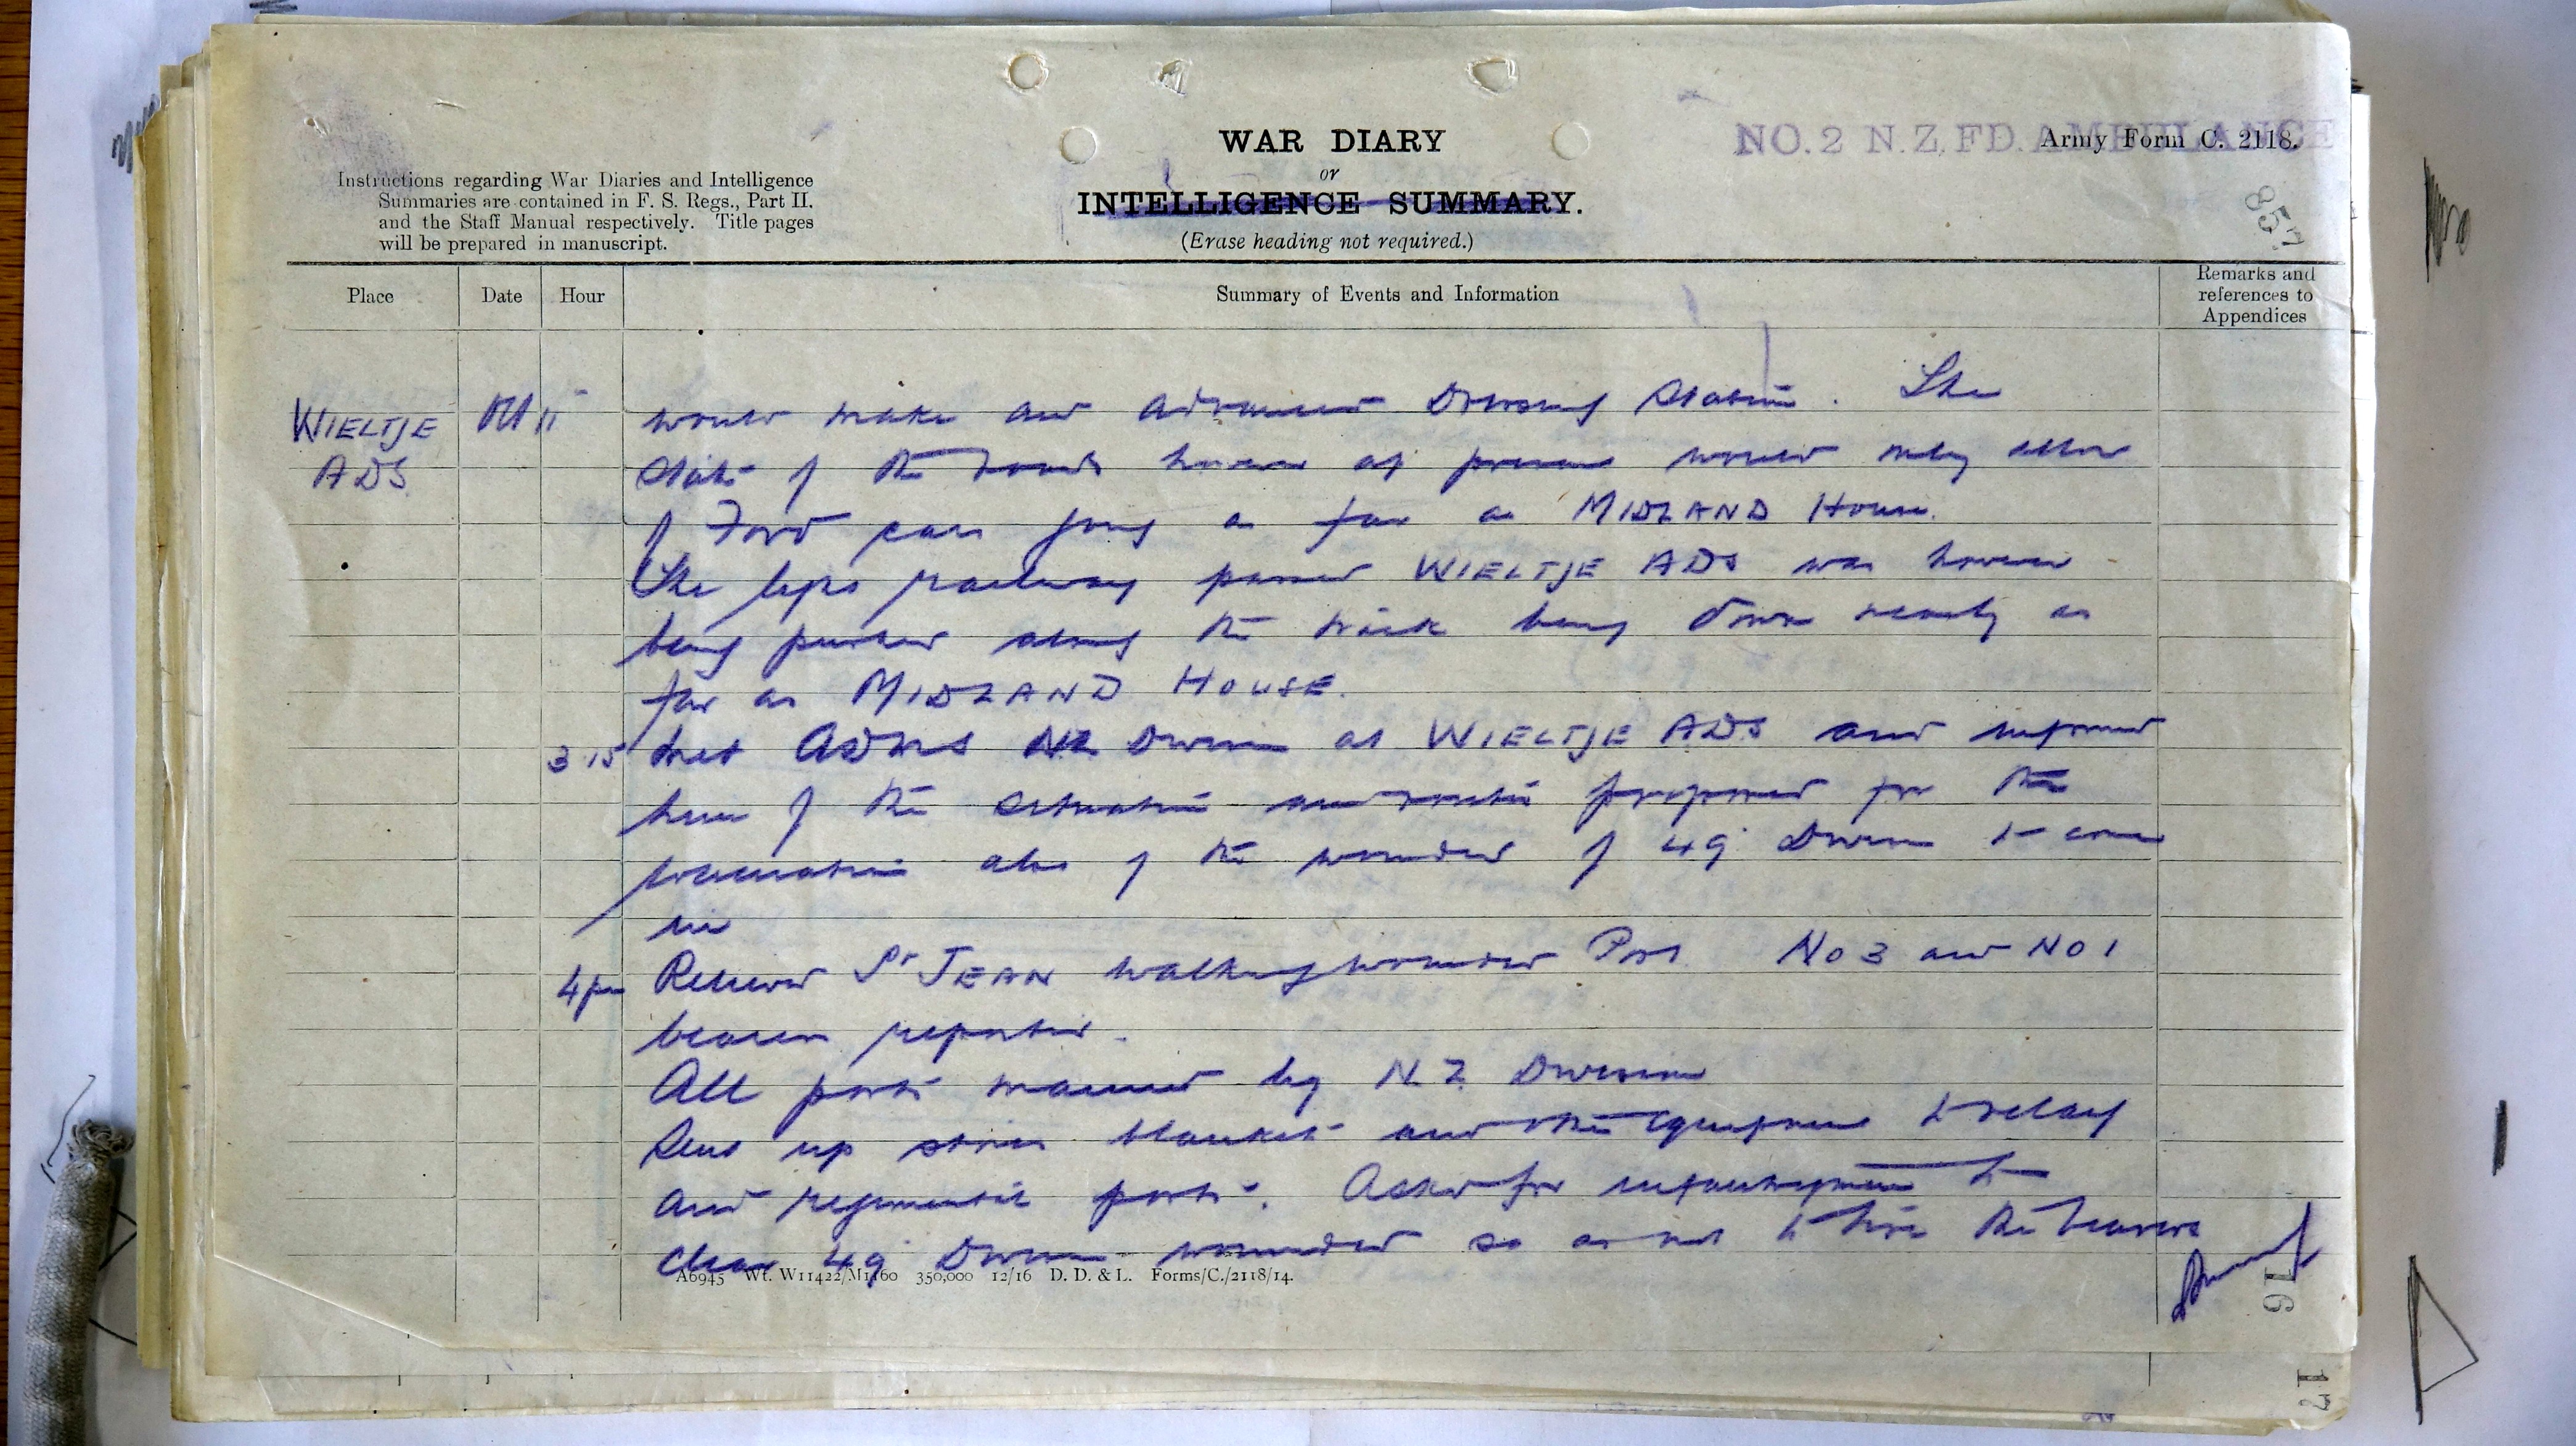 NO. 2 N.Z. FD. AMBULANCE
Army Form C. 2118.
WAR DIARY
or
INTELLIGENCE SUMMARY.
(Erase heading not required.)
Instructions regarding War Diaries and Intelligence
Summaries are contained in F. S. Regs., Part II.
and the Staff Manual respectively. Title pages
will be prepared in manuscript.
857
Place Date Hour Summary of Events and Information Remarks and references to Appendices
WIELTJE Oct 11 would make an advanced Dressing Station. The
ADS state of the roads however at present would only allow
of Ford cars going as far as MIDLAND House.
The light railway passed WIELTJE ADS was however
being pushed along the track being down nearly as
far as MIDLAND HOUSE.
3.15 Met ADMS NZ Division at WIELTJE ADS and informed
him of the situation and routes proposed for the
evacuation also of the wounded of 49 Division to come
in
4 pm Relieved St JEAN walking wounded Post No 3 and No 1
bearers reported.
All posts manned by N.Z. Division
Sent up stores blankets and other equipment to relay
and regimental posts. Asked for reinforcements to
clear 49 Division wounded so as not to tire the bearers
A6945 Wt. W11422/M1160 350,000 12/16 D. D. & L. Forms/C./2118/14.
16
17